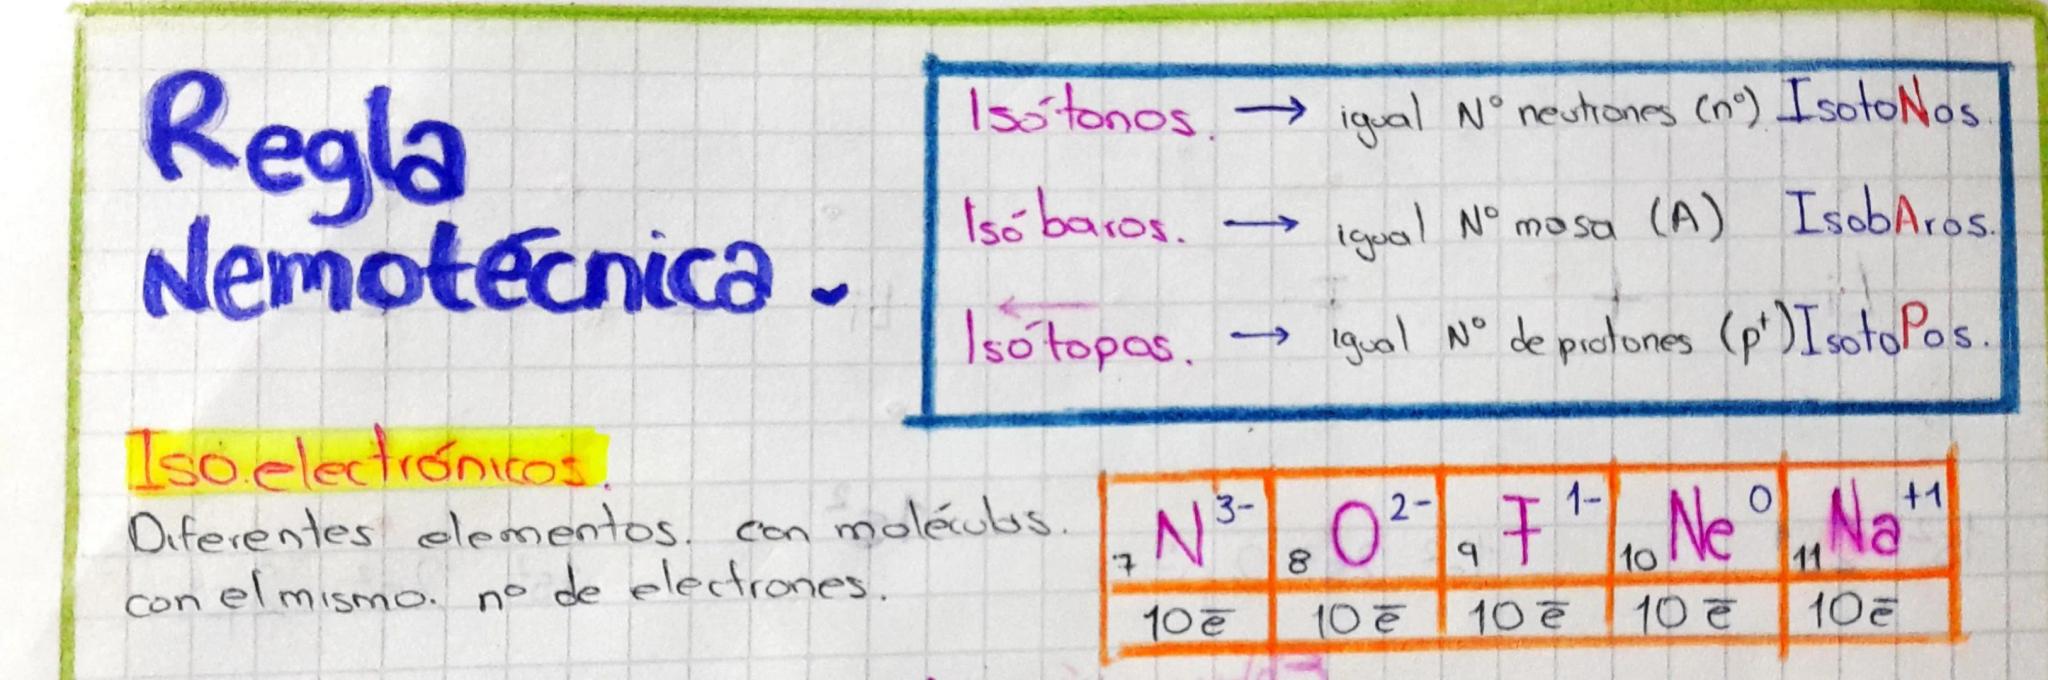 Regla
Nemotécnica.
Isótonos. → igual Nº neutrones (nº) IsotoNos.
Isóbaros. → igual Nº masa (A) IsobAros.
Isótopos. → igual Nº de protones (p⁺) IsotoPos.
Iso.electrónicos.
Diferentes elementos. con moléculas.
con el mismo. nº de electrones.
₇N³⁻ ₈O²⁻ ₉F¹⁻ ₁₀Ne⁰ ₁₁Na⁺¹
10e̅ 10e̅ 10e̅ 10e̅ 10e̅